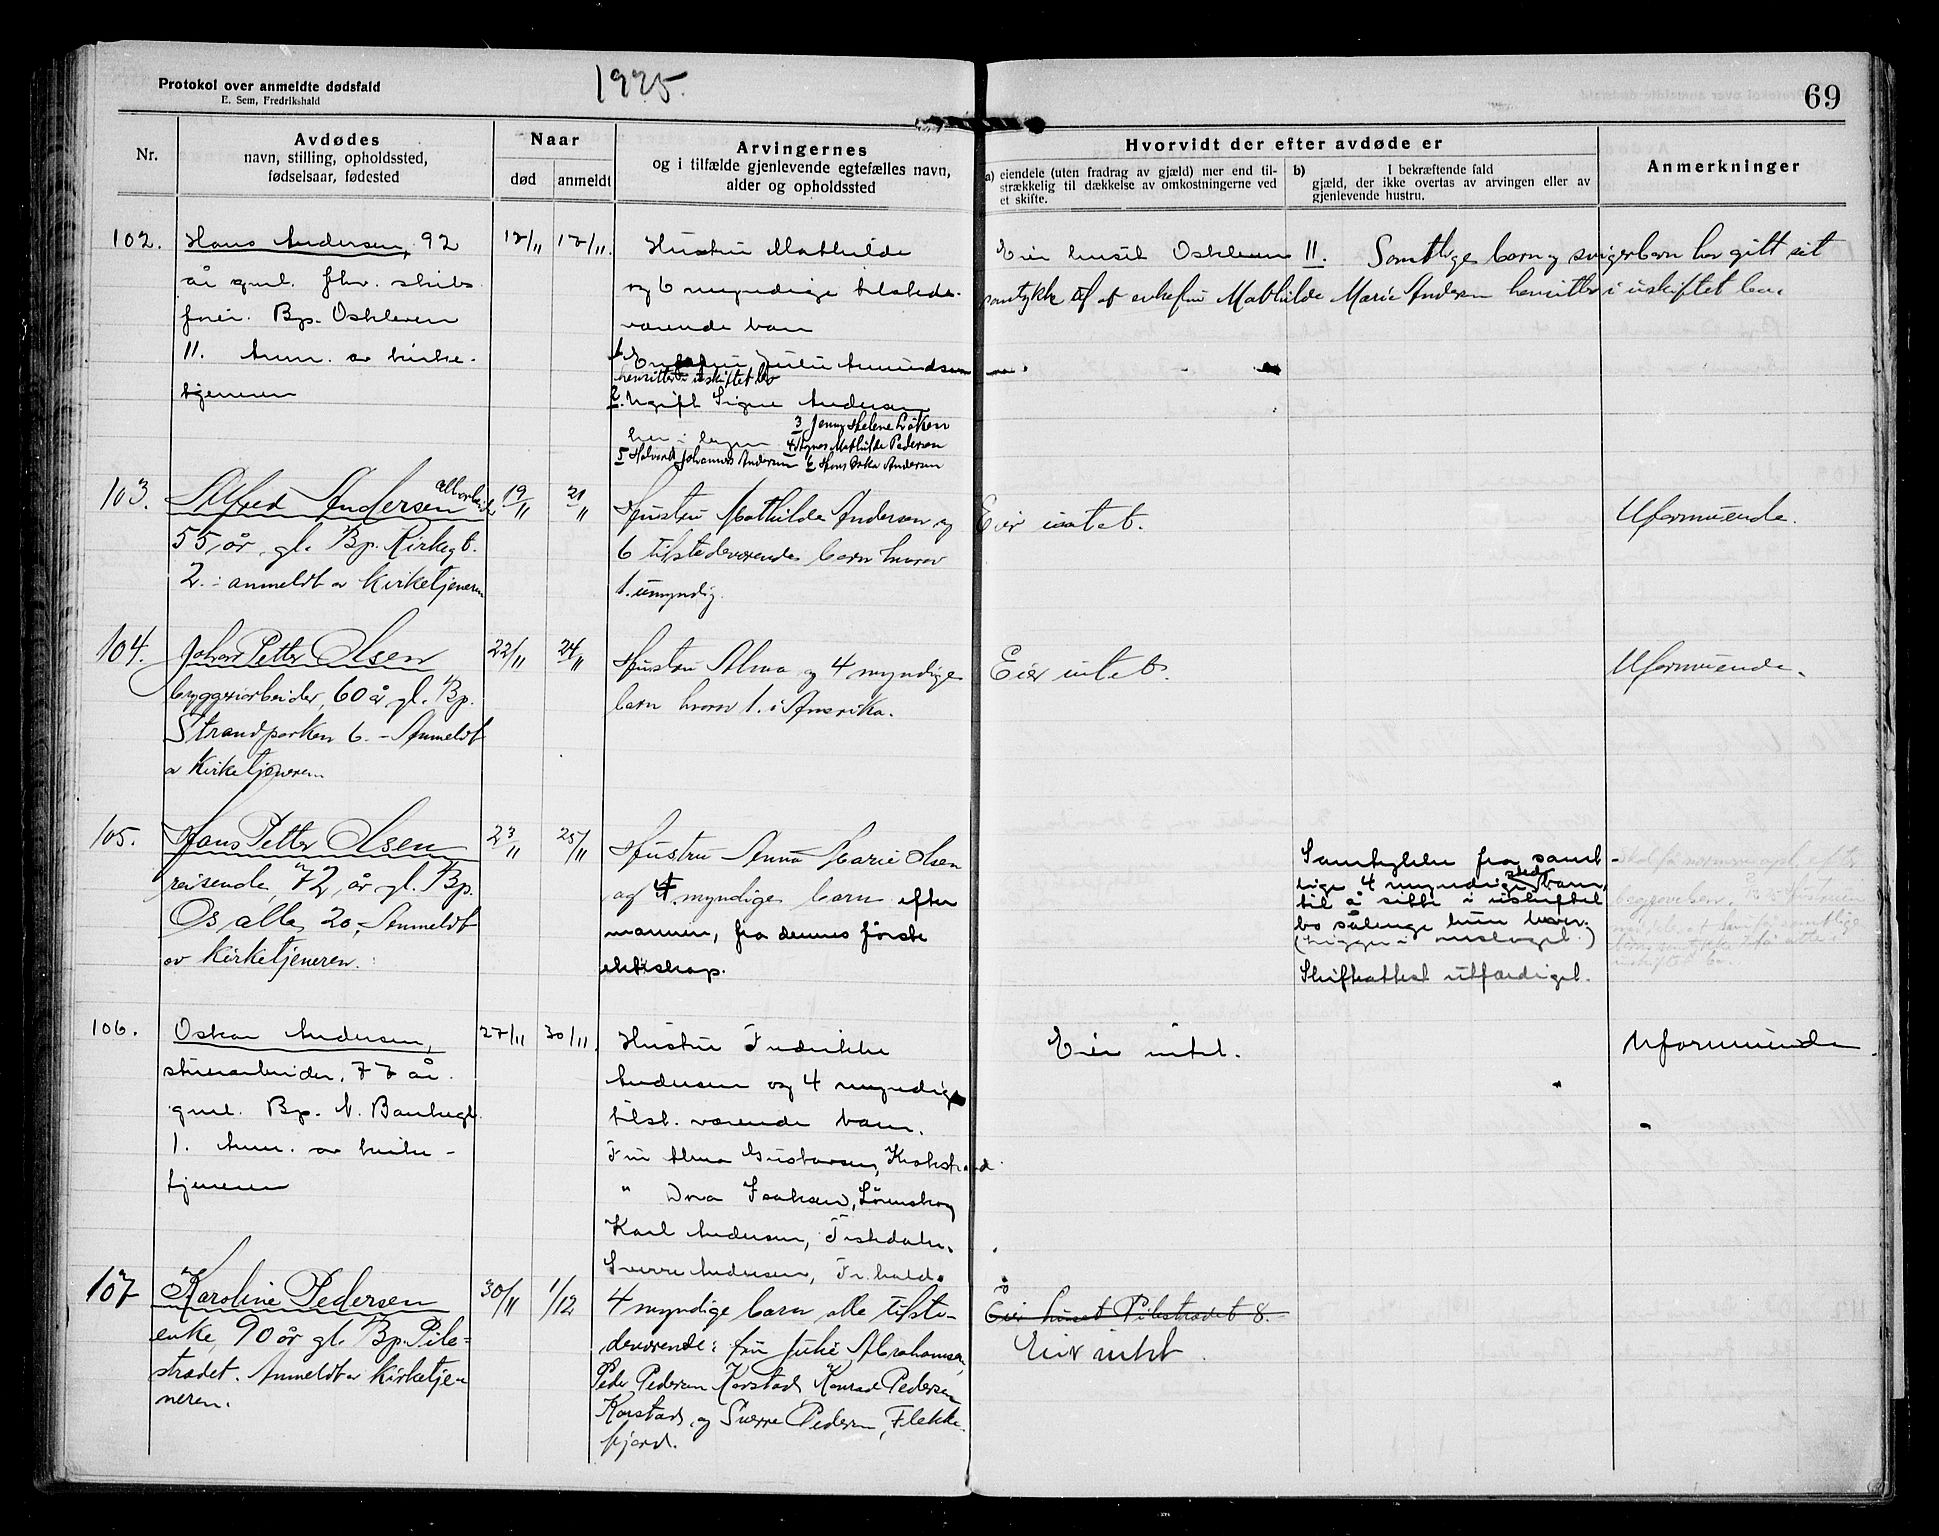 Protokol over anmeldte dødsfald
E. Sem, Fredrikshald
1925.
69
Nr.
Avdødes
navn, stilling, opholdssted,
fødselsaar, fødested
Naar
død
anmeldt
Arvingernes
og i tilfælde gjenlevende egtefælles navn,
alder og opholdssted
Hvorvidt der efter avdøde er
a) eiendele (uten fradrag av gjæld) mer end til-
strækkelig til dækkelse av omkostningerne ved
et skifte.
b) I bekræftende fald
gjæld, der ikke overtas av arvingen eller av
gjenlevende hustru.
Anmerkninger
102.
Hans Andersen, 92
år gml. fhv. skibs
fører. Bp. Oskleven
11. Anm. av kirke-
tjeneren
17/11
17/11.
Hustru Mathilde
og 6 myndige tilstede-
værende barn
1 Enkefru Julie Amundsen
hensitter i uskiftet bo
2. Ugift Signe Andersen
her i byen
3 Jenny Helene Löken
4 Agnes Mathilde Pedersen
5 Halvard Johannes Andersen 6 Hans Oskar Andersen
Eier huset Oskleven 11. Samtlige barn og svigerbarn har gitt sit
samtykke til at enkefru Mathilde Marie Andersen hensitter i uskiftet bo.
103.
Alfred Andersen
55 år gl. Bp. Kirkegt.
2. anmeldt av kirketjeneren
19/11
21/11
Hustru Mathilde Andersen og
6 tilstedeværende barn hvorav
1. umyndig.
Eier intet.
Uformuende.
104.
Johan Petter Olsen
bryggeriarbeider, 60 år gl. Bp.
Strandparken 6. - Anmeldt
av kirketjeneren.
22/11
24/11
Hustru Alma og 4 myndige
barn hvorav 1. i Amerika.
Eier intet.
Uformuende.
105.
Hans Petter Olsen
reisende, 72 år gl. Bp.
Os alle 20, - Anmeldt
av kirketjeneren.
23/11
25/11
Hustru Anna Marie Olsen
og 4 myndige barn efter
mannen, fra dennes første
ekteskap.
Samtykke fra samt-
lige 4 myndige stedbarn,
til å sitte i uskiftet
bo sålenge hun lever.
(Ligger i omslaget.)
Skifteattest utfærdiget.
106.
Oskar Andersen,
stuerarbeider, 77 år
gml. Bp. N. Bankegt.
1. Anm. av kirke-
tjeneren
27/11
30/11.
Hustru Fredrikke
Andersen og 4 myndige
tilst. værende barn.
Fru Alma Gustavsen, Krokstrand
" Dora Isaksen, Lörenskog
Karl Andersen, Tistedalen.
Sverre Andersen, Fr.hald.
Eier intet.
Uformuende
107
Karoline Pedersen
enke, 90 år gl. Bp. Pile-
strædet. Anmeldt av kirketje-
neren.
30/11
1/12
4 myndige barn alle tilste-
deværende: fru Julie Abrahamsen,
Peder Pedersen Korstad, Konrad Pedersen
Korstad, og Sverre Pedersen, Flekke-
fjord.
Eier huset Pilestrædet 8.-
Eier intet.